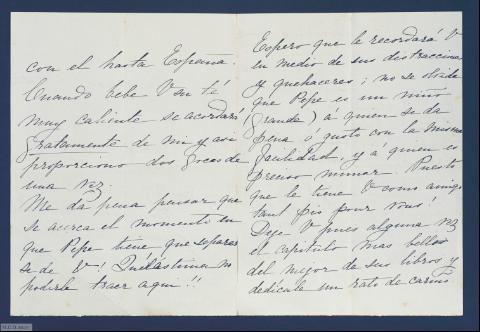 con el hasta España.
Cuando bebe V su té
muy caliente se acordará
gratamente de mi y asi
proporciono dos goces de
una vez.
Me da pena pensar que
se acerca el momento en
que Pepe tiene que separar
se de V! Qué lástima no
poderla traer aqui!!
Espero que le recordará V
en medio de sus destracciones
y quehaceres; no se olvide
que Pepe es un niño
(grande) a quien se da
pena ó gusto con la misma
facilidad, y á quien es
preciso mimar. Puesto
que le tiene V como amigo
tant pis pour vous!
Deje V pues alguna vez
el capitulo mas bello
del mejor de sus libros y
dedicale un rato de cariño